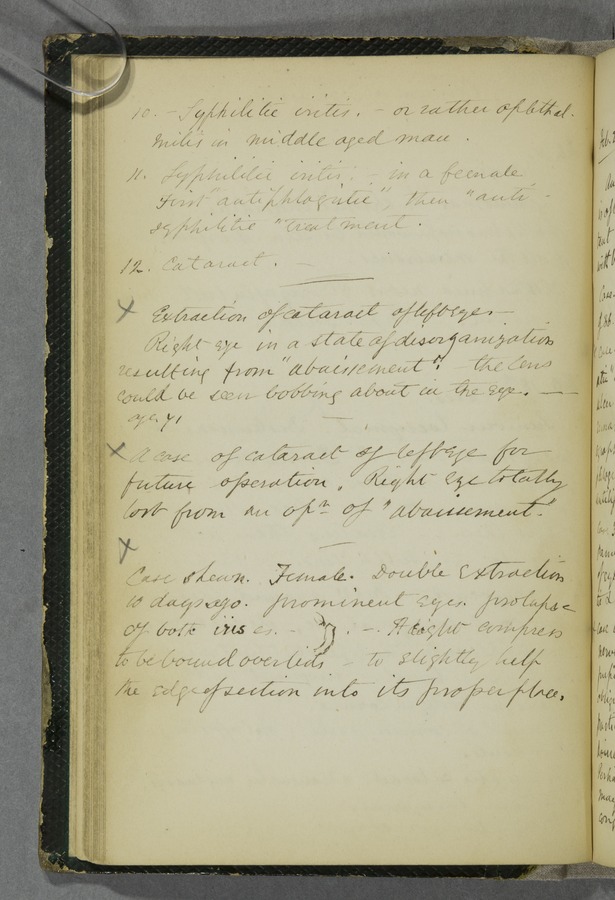 10. - Syphilitic iritis. - or rather ophthal-
mitis in middle aged man.
11. Syphilitic iritis. - in a female
First "antiphlogistic", then "anti-
syphilitic" treatment.
12. Cataract. -
X Extraction of cataract of left eye. -
Right eye in a state of disorganization
resulting from "abaissement". - the lens
could be seen bobbing about in the eye. -
age 41
X A case of cataract of left eye for
future operation. Right eye totally
lost from an opn of "abaissement."
X
Case shewn. Female. Double Extraction
10 days ago. prominent eyes. prolapse
of both irises. - . - A light compress
to be bound over lids - to slightly help
the edge of section into its proper place.